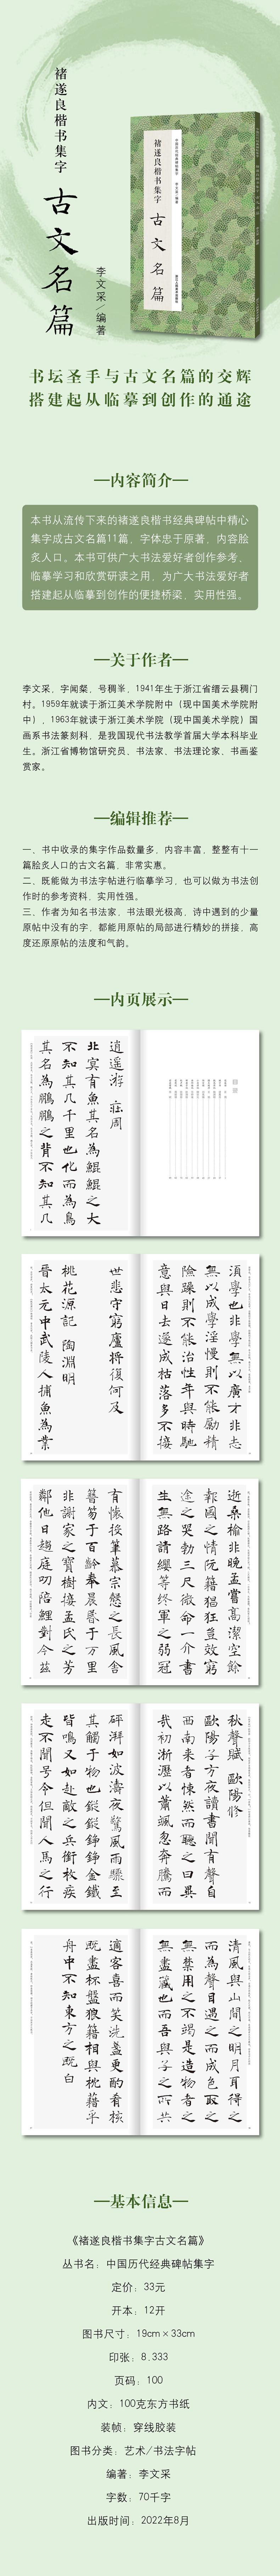 褚遂良楷书集字
古文名篇
李文采/编著
中国历代经典碑帖集字
李文采 编著
褚遂良楷书集字
古文名篇
书坛圣手与古文名篇的交辉
搭建起从临摹到创作的通途
—内容简介—
本书从流传下来的褚遂良楷书经典碑帖中精心
集字成古文名篇11篇，字体忠于原著，内容脍
炙人口。本书可供广大书法爱好者创作参考、
临摹学习和欣赏研读之用，为广大书法爱好者
搭建起从临摹到创作的便捷桥梁，实用性强。
—关于作者—
李文采，字闻粲，号稠峯，1941年生于浙江省缙云县稠门
村。1959年就读于浙江美术学院附中（现中国美术学院附
中），1963年就读于浙江美术学院（现中国美术学院）国
画系书法篆刻科，是我国现代书法教学首届大学本科毕业
生。浙江省博物馆研究员、书法家、书法理论家、书画鉴
赏家。
—编辑推荐—
一、书中收录的集字作品数量多，内容丰富，整整有十一
篇脍炙人口的古文名篇，非常实惠。
二、既能做为书法字帖进行临摹学习，也可以做为书法创
作时的参考资料，实用性强。
三、作者为知名书法家，书法眼光极高，诗中遇到的少量
原帖中没有的字，都能用原帖的局部进行精妙的拼接，高
度还原原帖的法度和气韵。
—内页展示—
逍遥游 莊周
北冥有魚其名為鯤鯤之大
不知其几千里也化而為鳥
其名為鵬鵬之背不知其几
須學也非學無以廣才非志
無以成學淫慢則不能勵精
險躁則不能治性年與時馳
意與日去遂成枯落多不接
世悲守窮廬將復何及
桃花源記 陶淵明
晉太元中武陵人捕魚為業
逝桑榆非晚孟嘗高潔空餘
報國之情阮籍猖狂豈效窮
途之哭勃三尺微命一介書
生無路請纓等終軍之弱冠
有懷投筆慕宗慤之長風舍
簪笏于百齡奉晨昏于万里
非謝家之寶樹接孟氏之芳
鄰他日趨庭叨陪鯉對今兹
秋聲賦 歐陽修
歐陽子方夜讀書聞有聲自
西南来者悚然而聽之曰異
哉初淅瀝以蕭颯忽奔騰而
砰湃如波濤夜驚風雨驟至
其觸于物也鏦鏦錚錚金鐵
皆鳴又如赴敵之兵銜枚疾
走不聞号令但聞人馬之行
清風與山間之明月耳得之
而為聲目遇之而成色取之
無禁用之不竭是造物者之
無盡藏也而吾與子之所共
適客喜而笑洗盞更酌肴核
既盡杯盤狼籍相與枕藉乎
舟中不知東方之既白
—基本信息—
《褚遂良楷书集字古文名篇》
丛书名：中国历代经典碑帖集字
定价：33元
开本：12开
图书尺寸：19cm×33cm
印张：8.333
页码：100
内文：100克东方书纸
装帧：穿线胶装
图书分类：艺术/书法字帖
编著：李文采
字数：70千字
出版时间：2022年8月